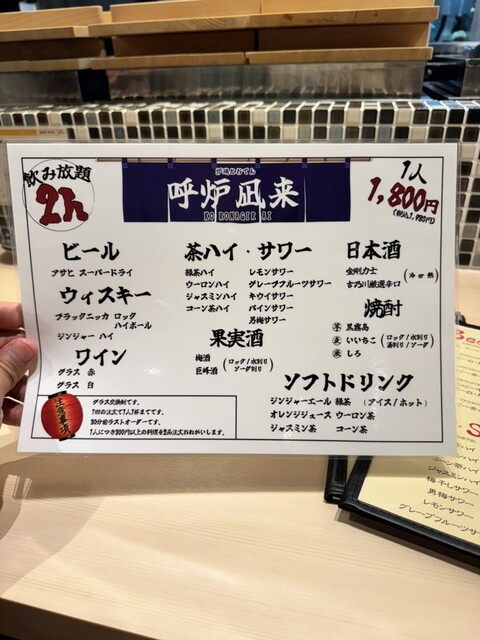 飲み放題
2h
炉端とおでん
呼炉凪来
KO RO NAGI RAI
1人
1,800円
(税込1,980円)
ビール
アサヒ スーパードライ
ウィスキー
ブラックニッカ ロック
ハイボール
ジンジャー ハイ
ワイン
グラス 赤
グラス 白
茶ハイ・サワー
緑茶ハイ レモンサワー
ウーロンハイ グレープフルーツサワー
ジャスミンハイ キウイサワー
コーン茶ハイ パインサワー
男梅サワー
果実酒
梅酒
巨峰酒
(ロック/水割り
ソーダ割り)
日本酒
金剛力士
吉乃川厳選辛口
(冷 or 熱)
焼酎
芋 黒霧島
麦 いいちこ
米 しろ
(ロック/水割り
湯割り/ソーダ)
ソフトドリンク
ジンジャーエール 緑茶 (アイス/ホット)
オレンジジュース ウーロン茶
ジャスミン茶 コーン茶
注意事項
グラス交換制です。
1回の注文で1人1杯までです。
30分前ラストオーダーです。
1人につき900円以上の料理を2品注文おねがいします。
ジャスミンハイ
梅干しサワー
男梅サワー
レモンサワー
グレープフルーツサ